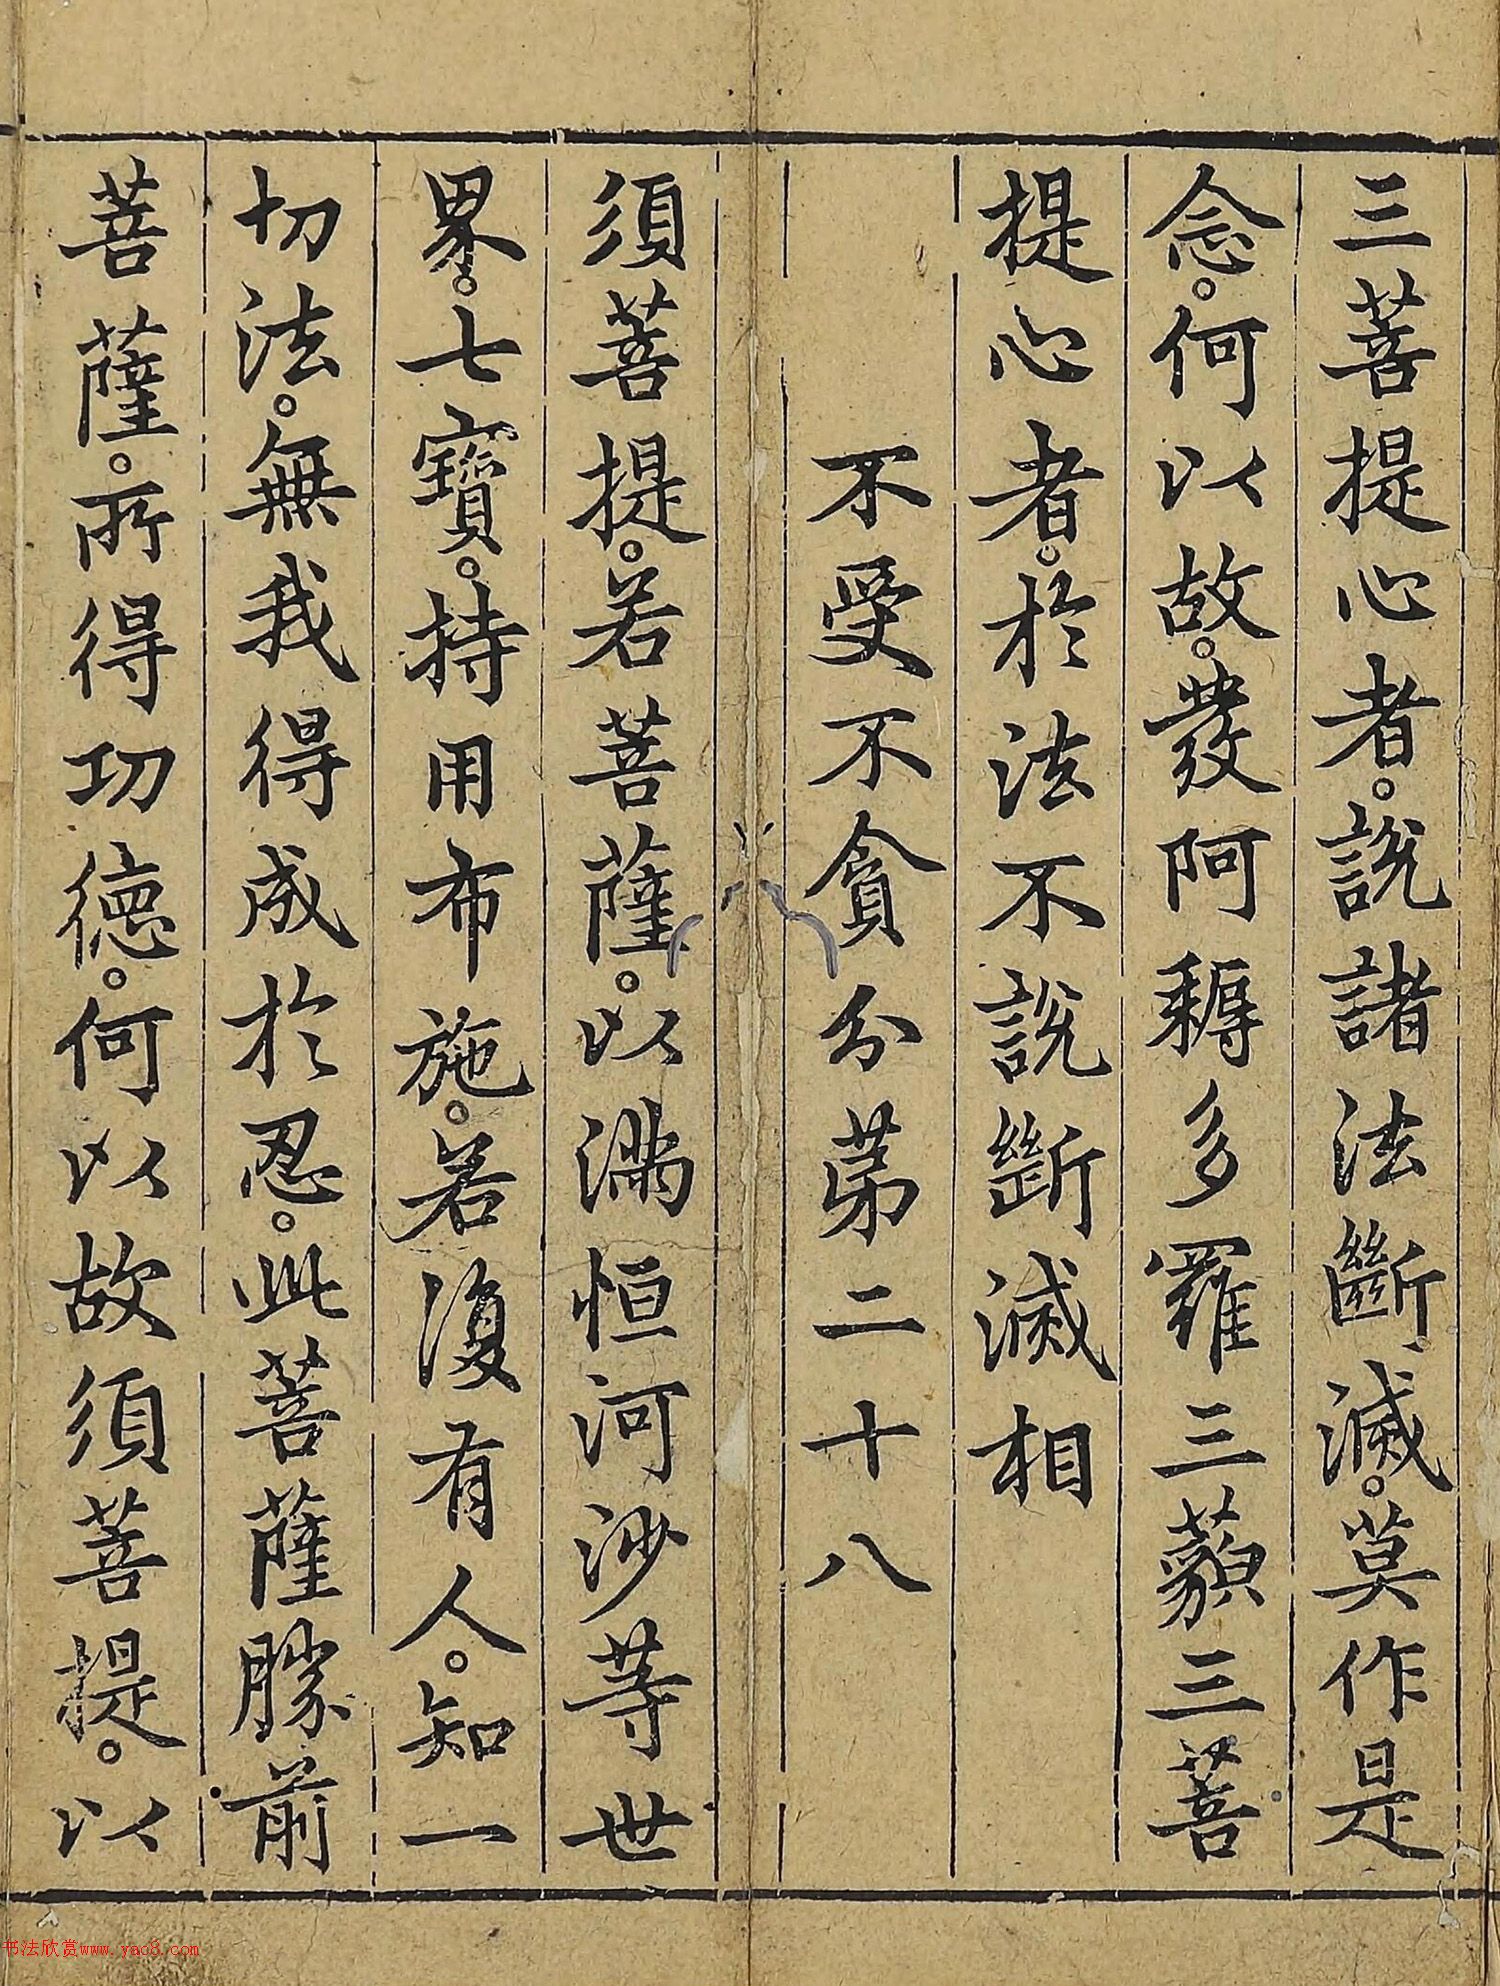 三菩提心者。說諸法斷滅。莫作是
念。何以故。發阿耨多羅三藐三菩
提心者。於法不說斷滅相
不受不貪分第二十八
須菩提。若菩薩。以滿恒河沙等世
界。七寶。持用布施。若復有人。知一
切法。無我得成於忍。此菩薩勝前
菩薩。所得功德。何以故須菩提。以
书法欣赏www.yac8.com